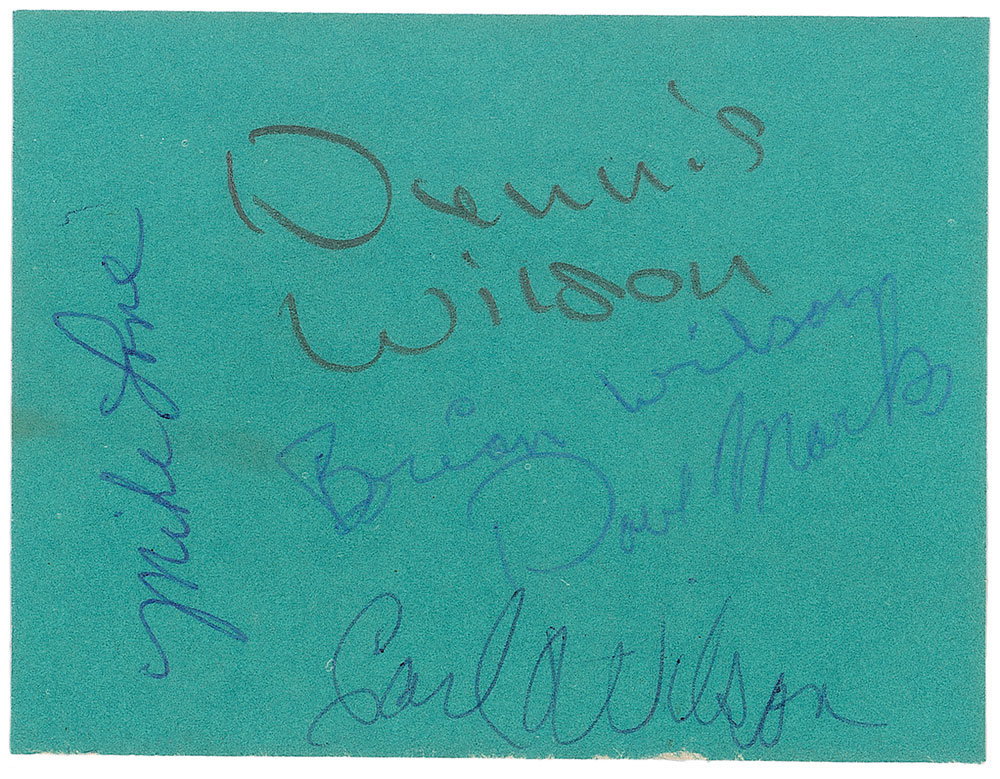 Dennis
Wilson
Mike Love
Brian Wilson
Dave Marks
Carl Wilson